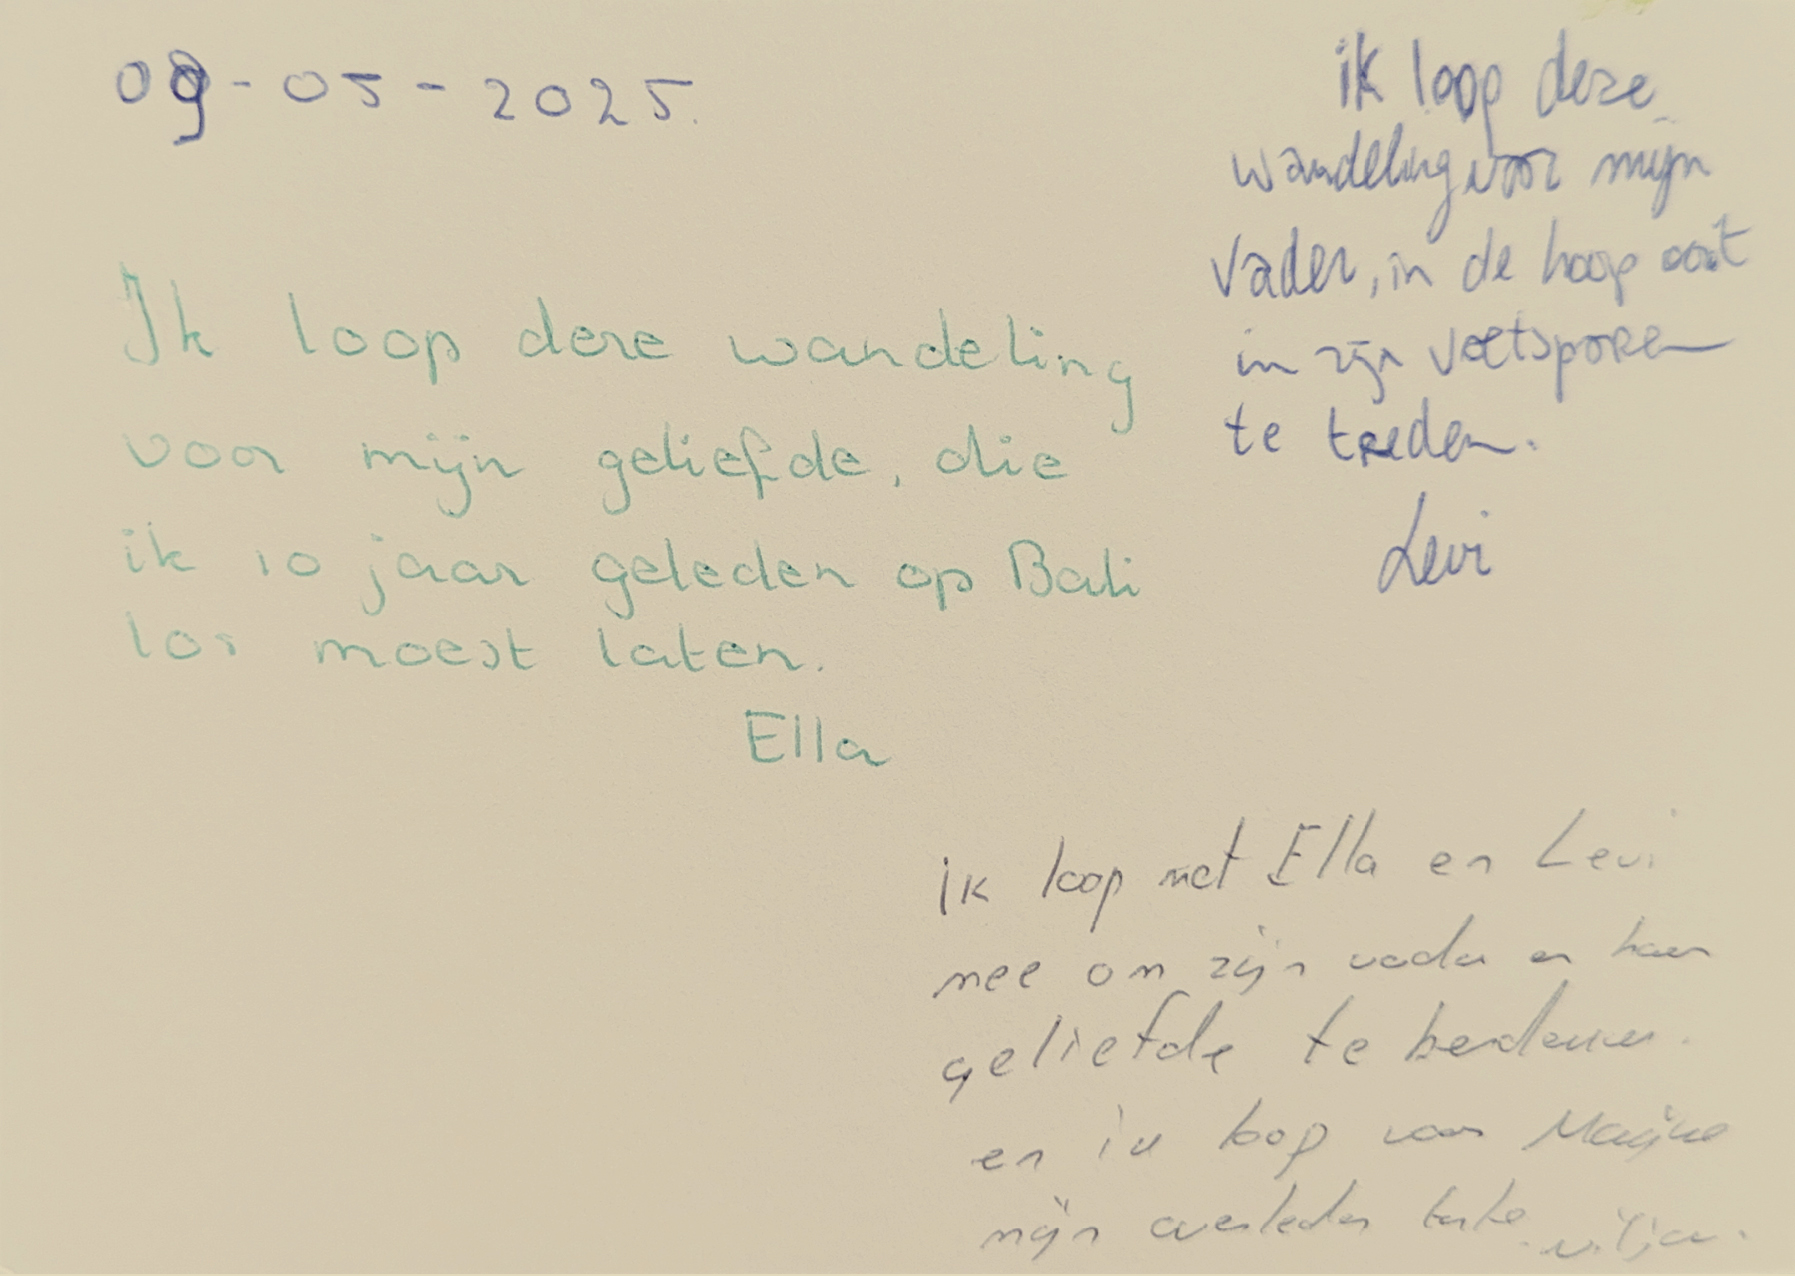 09-05-2025.
Ik loop deze wandeling
voor mijn geliefde, die
ik 10 jaar geleden op Bali
los moest laten.
Ella
ik loop deze
wandeling voor mijn
vader, in de hoop ooit
in zijn voetsporen
te treden.
Levi
ik loop met Ella en Levi
mee om zijn vader en haar
geliefde te herdenken.
en ik loop voor
mijn overleden tante.